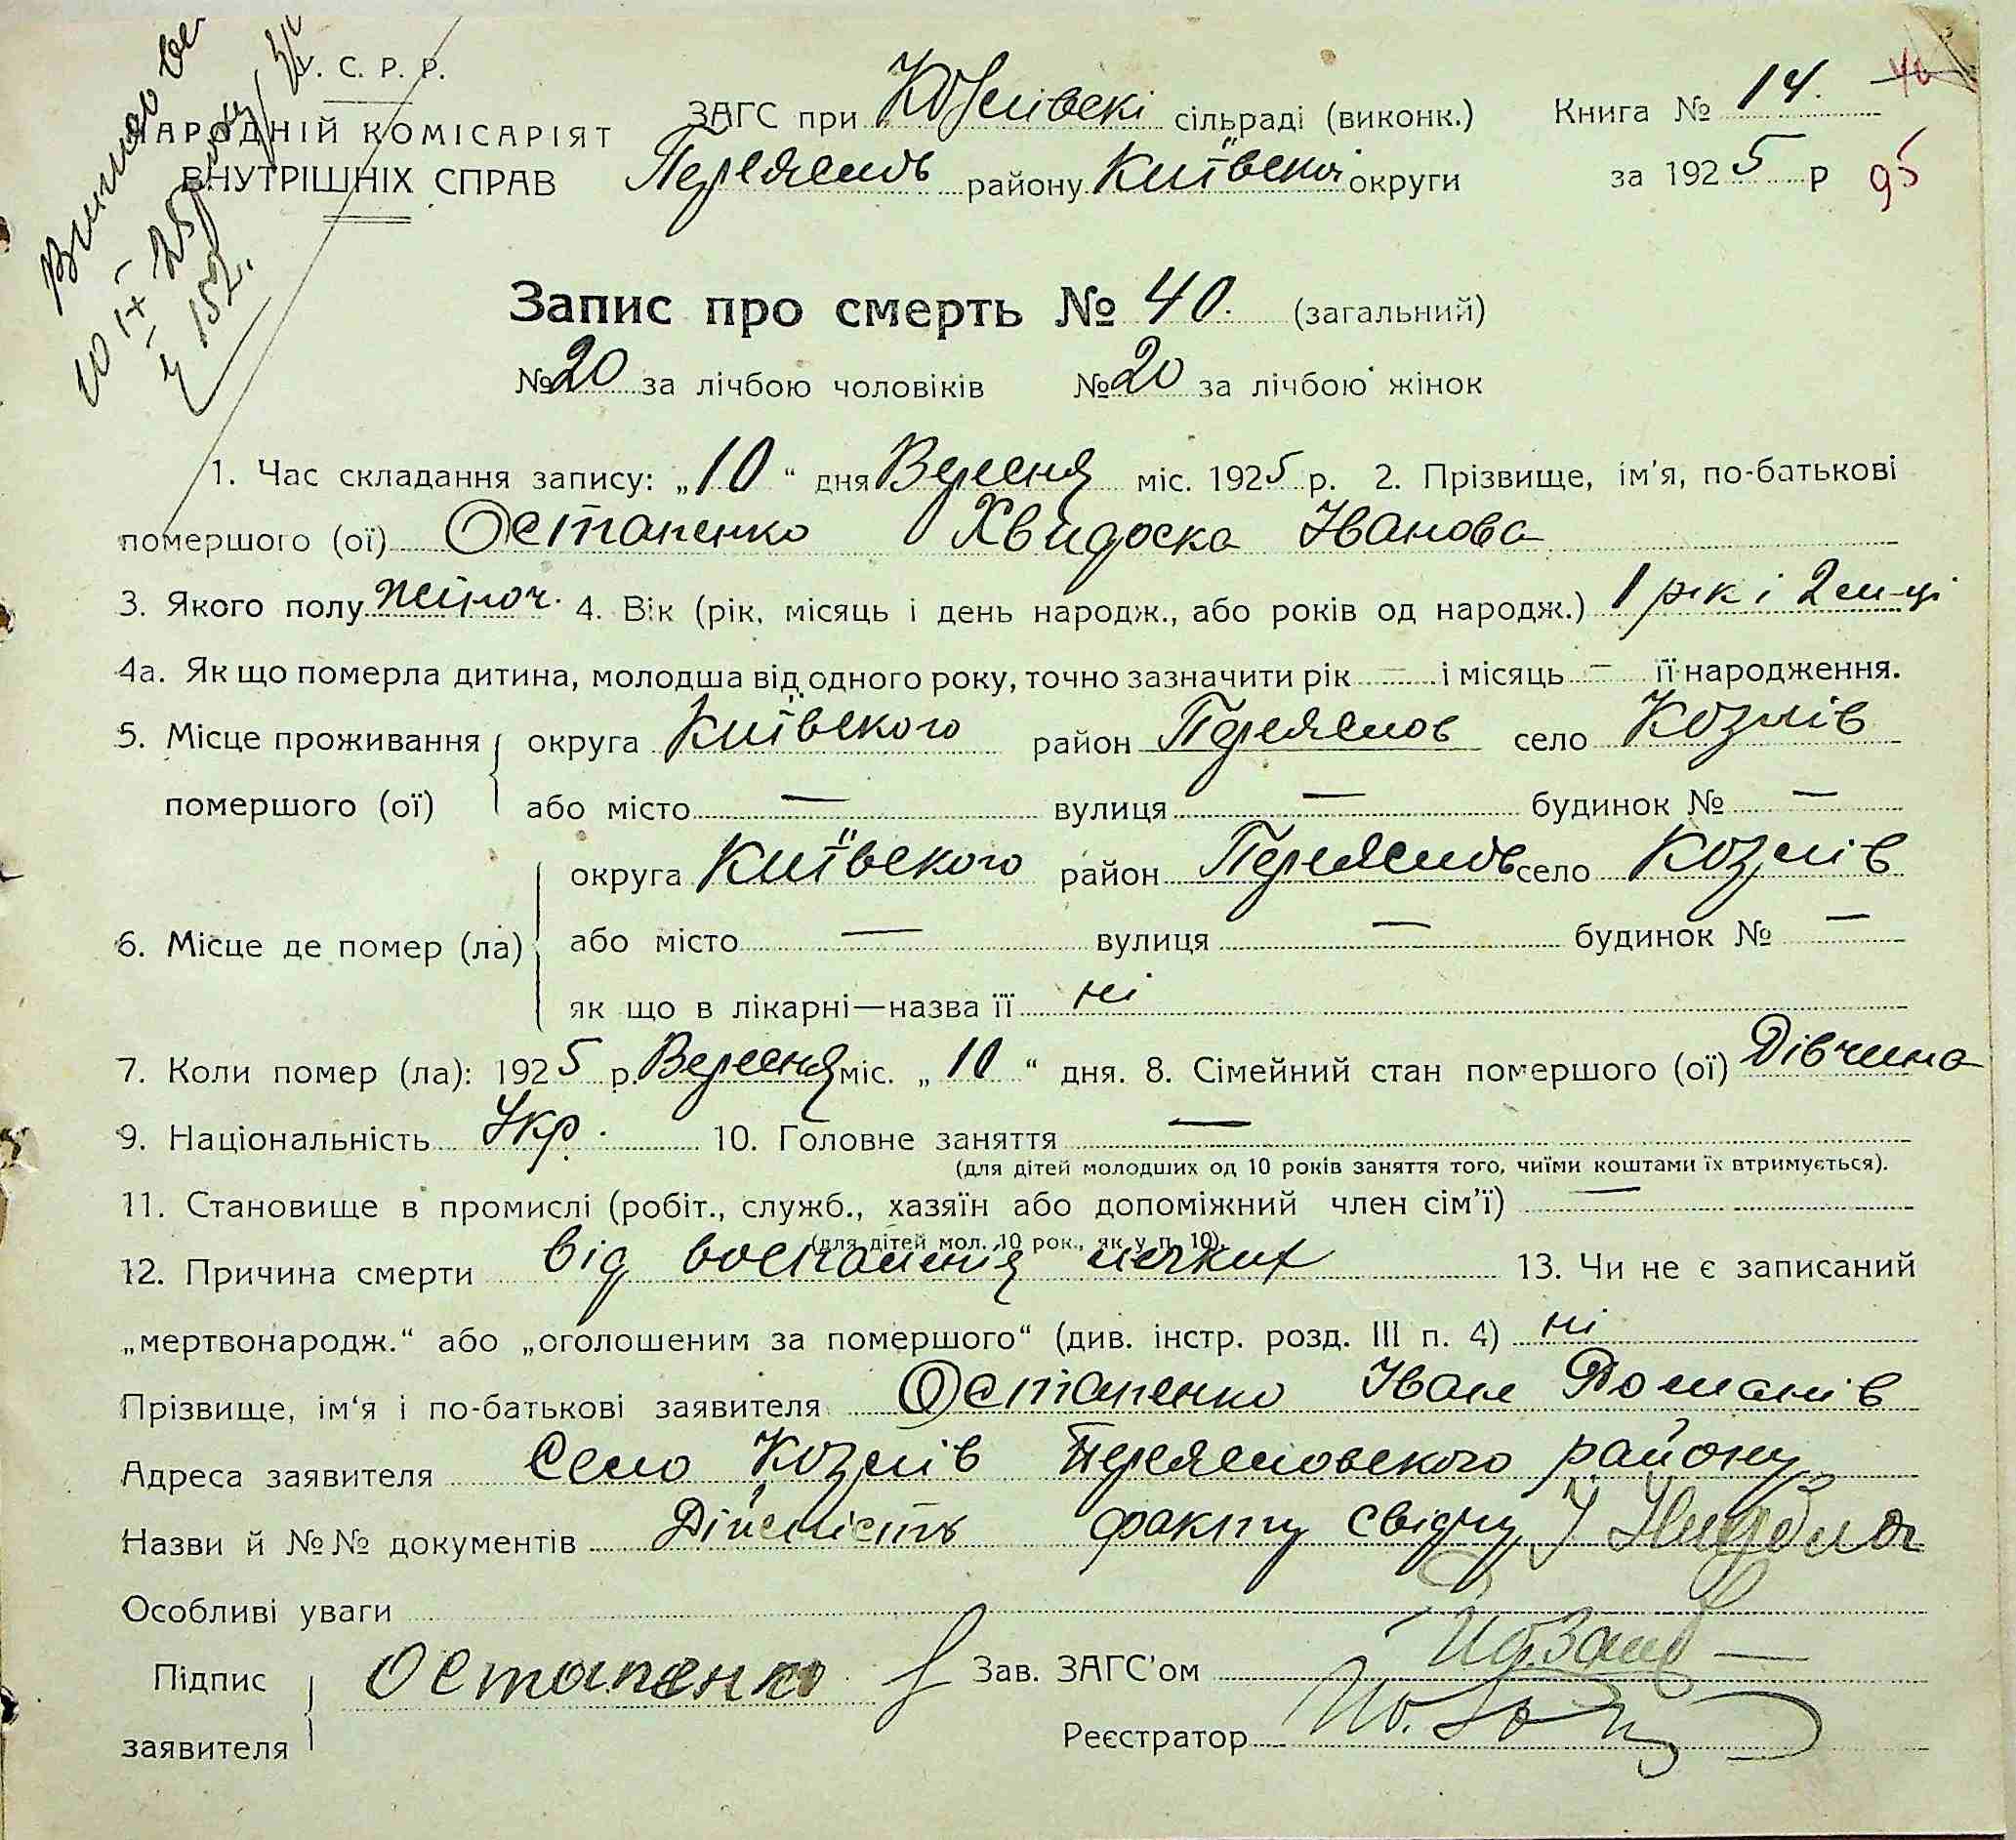 У. С. Р. Р.
НАРОДНІЙ КОМІСАРІЯТ
ВНУТРІШНІХ СПРАВ
ЗАГС при Козлівскі сільраді (виконк.)
Переяслов району Київскої округи
Книга № 14.
за 1925 р
95
10 IX 25
ч 152.
Запис про смерть № 40. (загальний)
№ 20 за лічбою чоловіків № 20 за лічбою жінок
1. Час складання запису: „10“ дня Вересня міс. 1925 р. 2. Прізвище, ім'я, по-батькові
помершого (ої) Остапенко Хвидоска Іванова
3. Якого полу жіноч. 4. Вік (рік, місяць і день народж., або років од народж.) 1 рік і 2 м-ці
4а. Як що померла дитина, молодша від одного року, точно зазначити рік — і місяць — її народження.
5. Місце проживання округа Київского район Переяслов село Козлів
помершого (ої) або місто — вулиця — будинок № —
округа Київского район Переяслов село Козлів
6. Місце де помер (ла) або місто — вулиця — будинок № —
як що в лікарні—назва її ні
7. Коли помер (ла): 1925 р. Вересня міс. „10“ дня. 8. Сімейний стан помершого (ої) Дівчина
9. Національність Укр. 10. Головне заняття —
(для дітей молодших од 10 років заняття того, чиїми коштами їх втримується).
11. Становище в промислі (робіт., служб., хазяїн або допоміжний член сім'ї) —
(для дітей мол. 10 рок., як у п. 10).
12. Причина смерти від воспаленія 13. Чи не є записаний
„мертвонародж.“ або „оголошеним за помершого“ (див. інстр. розд. III п. 4) ні
Прізвище, ім'я і по-батькові заявителя Остапенко Іван Романів
Адреса заявителя Село Козлів Переясловского району
Назви й №№ документів Дійсність факту свідчу
Особливі уваги
Підпис заявителя Остапенко
Зав. ЗАГС'ом
Реєстратор